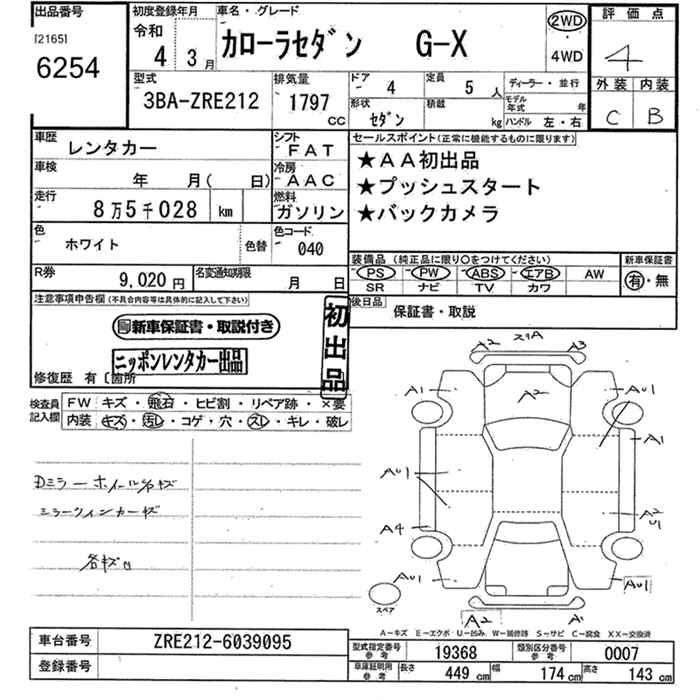 出品番号
[2165]
6254
初度登録年月
令和
4 3月
車名・グレード
カローラセダン G-X
2WD
4WD
評価点
4
外装 内装
C B
型式
3BA-ZRE212
排気量
1797
CC
ドア 4
定員 5人
ディーラー・並行
形状 セダン
積載 kg
モデル年式 年
ハンドル 左・右
車歴 レンタカー
シフト FAT
車検 年 月( 日)
冷房 AAC
走行 8万5千028 km
燃料 ガソリン
色 ホワイト
色替
色コード 040
R券 9,020円
名変通知期限 月 日
セールスポイント(正常に機能するものに限ります)
★AA初出品
★プッシュスタート
★バックカメラ
装備品(純正品に限り○をつけてください)
新車保証書
PS PW ABS エアB AW
SR ナビ TV カワ
有・無
後日品 保証書・取説
注意事項申告欄(不具合内容等は具体的に記入して下さい)
新車保証書・取説付き
ニッポンレンタカー出品
初出品
修復歴 有〔箇所
検査員記入欄
FW キズ・飛石・ヒビ割・リペア跡・×要
内装 キズ・汚レ・コゲ・穴・スレ・キレ・破レ
Dミラーホイールキズ
ミラーウィンカーキズ
各キズU
A2 スリA A3
A1 A2 AU1
A1
AU1
A2
U1
A4
AU1 AU1
スペア
A2 A1
A-キズ E-エクボ U-凹み W-補修跡 S-サビ C-腐食 XX-交換済
車台番号 ZRE212-6039095
登録番号
型式指定番号参考 19368
類別区分番号参考 0007
車庫証明用参考 長さ 449 cm 幅 174 cm 高さ 143 cm